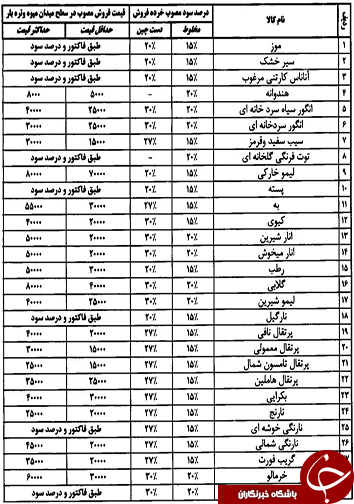 ردیف نام کالا درصد سود مصوب خرده فروش قیمت فروش مصوب در سطح میدان میوه وتره بار
مخلوط دست چین حداقل قیمت حداکثر قیمت
۱ موز ۱۵٪ ۲۰٪ طبق فاکتور و درصد سود
۲ سیر خشک ۱۵٪ ۲۰٪ طبق فاکتور و درصد سود
۳ آناناس کارتنی مرغوب ۱۵٪ ۲۰٪ طبق فاکتور و درصد سود
۴ هندوانه ۲۰٪ - ۵۰۰۰ ۸۰۰۰
۵ انگور سیاه سرد خانه ای ۲۰٪ ۳۰٪ ۲۵۰۰۰ ۴۰۰۰۰
۶ انگور سردخانه ای ۲۰٪ ۳۰٪ ۲۵۰۰۰ ۳۰۰۰۰
۷ سیب سفید وقرمز ۱۵٪ ۲۷٪ ۱۵۰۰۰ ۳۰۰۰۰
۸ توت فرنگی گلخانه ای ۲۰٪ - طبق فاکتور و درصد سود
۹ لیمو خارکی ۱۵٪ ۲۰٪ ۷۰۰۰۰ ۸۰۰۰۰
۱۰ پسته ۱۵٪ ۲۰٪ طبق فاکتور و درصد سود
۱۱ به ۱۵٪ ۲۷٪ ۳۰۰۰۰ ۵۵۰۰۰
۱۲ کیوی ۱۵٪ ۳۰٪ ۲۰۰۰۰ ۴۰۰۰۰
۱۳ انار شیرین ۲۰٪ ۳۰٪ ۲۰۰۰۰ ۵۰۰۰۰
۱۴ انار میخوش ۲۰٪ ۳۰٪ ۲۰۰۰۰ ۵۰۰۰۰
۱۵ رطب ۱۵٪ ۲۰٪ ۳۰۰۰۰ ۵۰۰۰۰
۱۶ گلابی ۲۰٪ ۳۰٪ ۴۰۰۰۰ ۸۰۰۰۰
۱۷ لیمو شیرین ۲۰٪ ۳۰٪ ۲۵۰۰۰ ۴۰۰۰۰
۱۸ نارگیل ۱۵٪ ۲۰٪ طبق فاکتور و درصد سود
۱۹ پرتقال نافی ۱۵٪ ۲۷٪ ۲۰۰۰۰ ۴۰۰۰۰
۲۰ پرتقال معمولی ۱۵٪ ۲۷٪ ۱۵۰۰۰ ۳۰۰۰۰
۲۱ پرتقال تامسون شمال ۱۵٪ ۲۷٪ ۱۵۰۰۰ ۳۵۰۰۰
۲۲ پرتقال هاملین ۱۵٪ ۲۷٪ ۲۵۰۰۰ ۳۵۰۰۰
۲۳ بکرایی ۱۵٪ ۲۷٪ ۳۰۰۰۰ ۴۰۰۰۰
۲۴ نارنج ۱۵٪ ۲۷٪ ۲۰۰۰۰ ۲۵۰۰۰
۲۵ نارنگی خوشه ای ۱۵٪ ۲۷٪ طبق فاکتور و درصد سود
۲۶ نارنگی شمالی ۱۵٪ ۲۷٪ ۲۰۰۰۰ ۴۵۰۰۰
گریپ فورت ۱۵٪ ۲۷٪ ۲۰۰۰۰ ۳۵۰۰۰
خرمالو ۲۰٪ ۳۰٪ ۳۰۰۰۰ ۶۰۰۰۰
۲۰٪ ۳۰٪ طبق فاکتور و درصد سود
باشگاه خبرنگاران